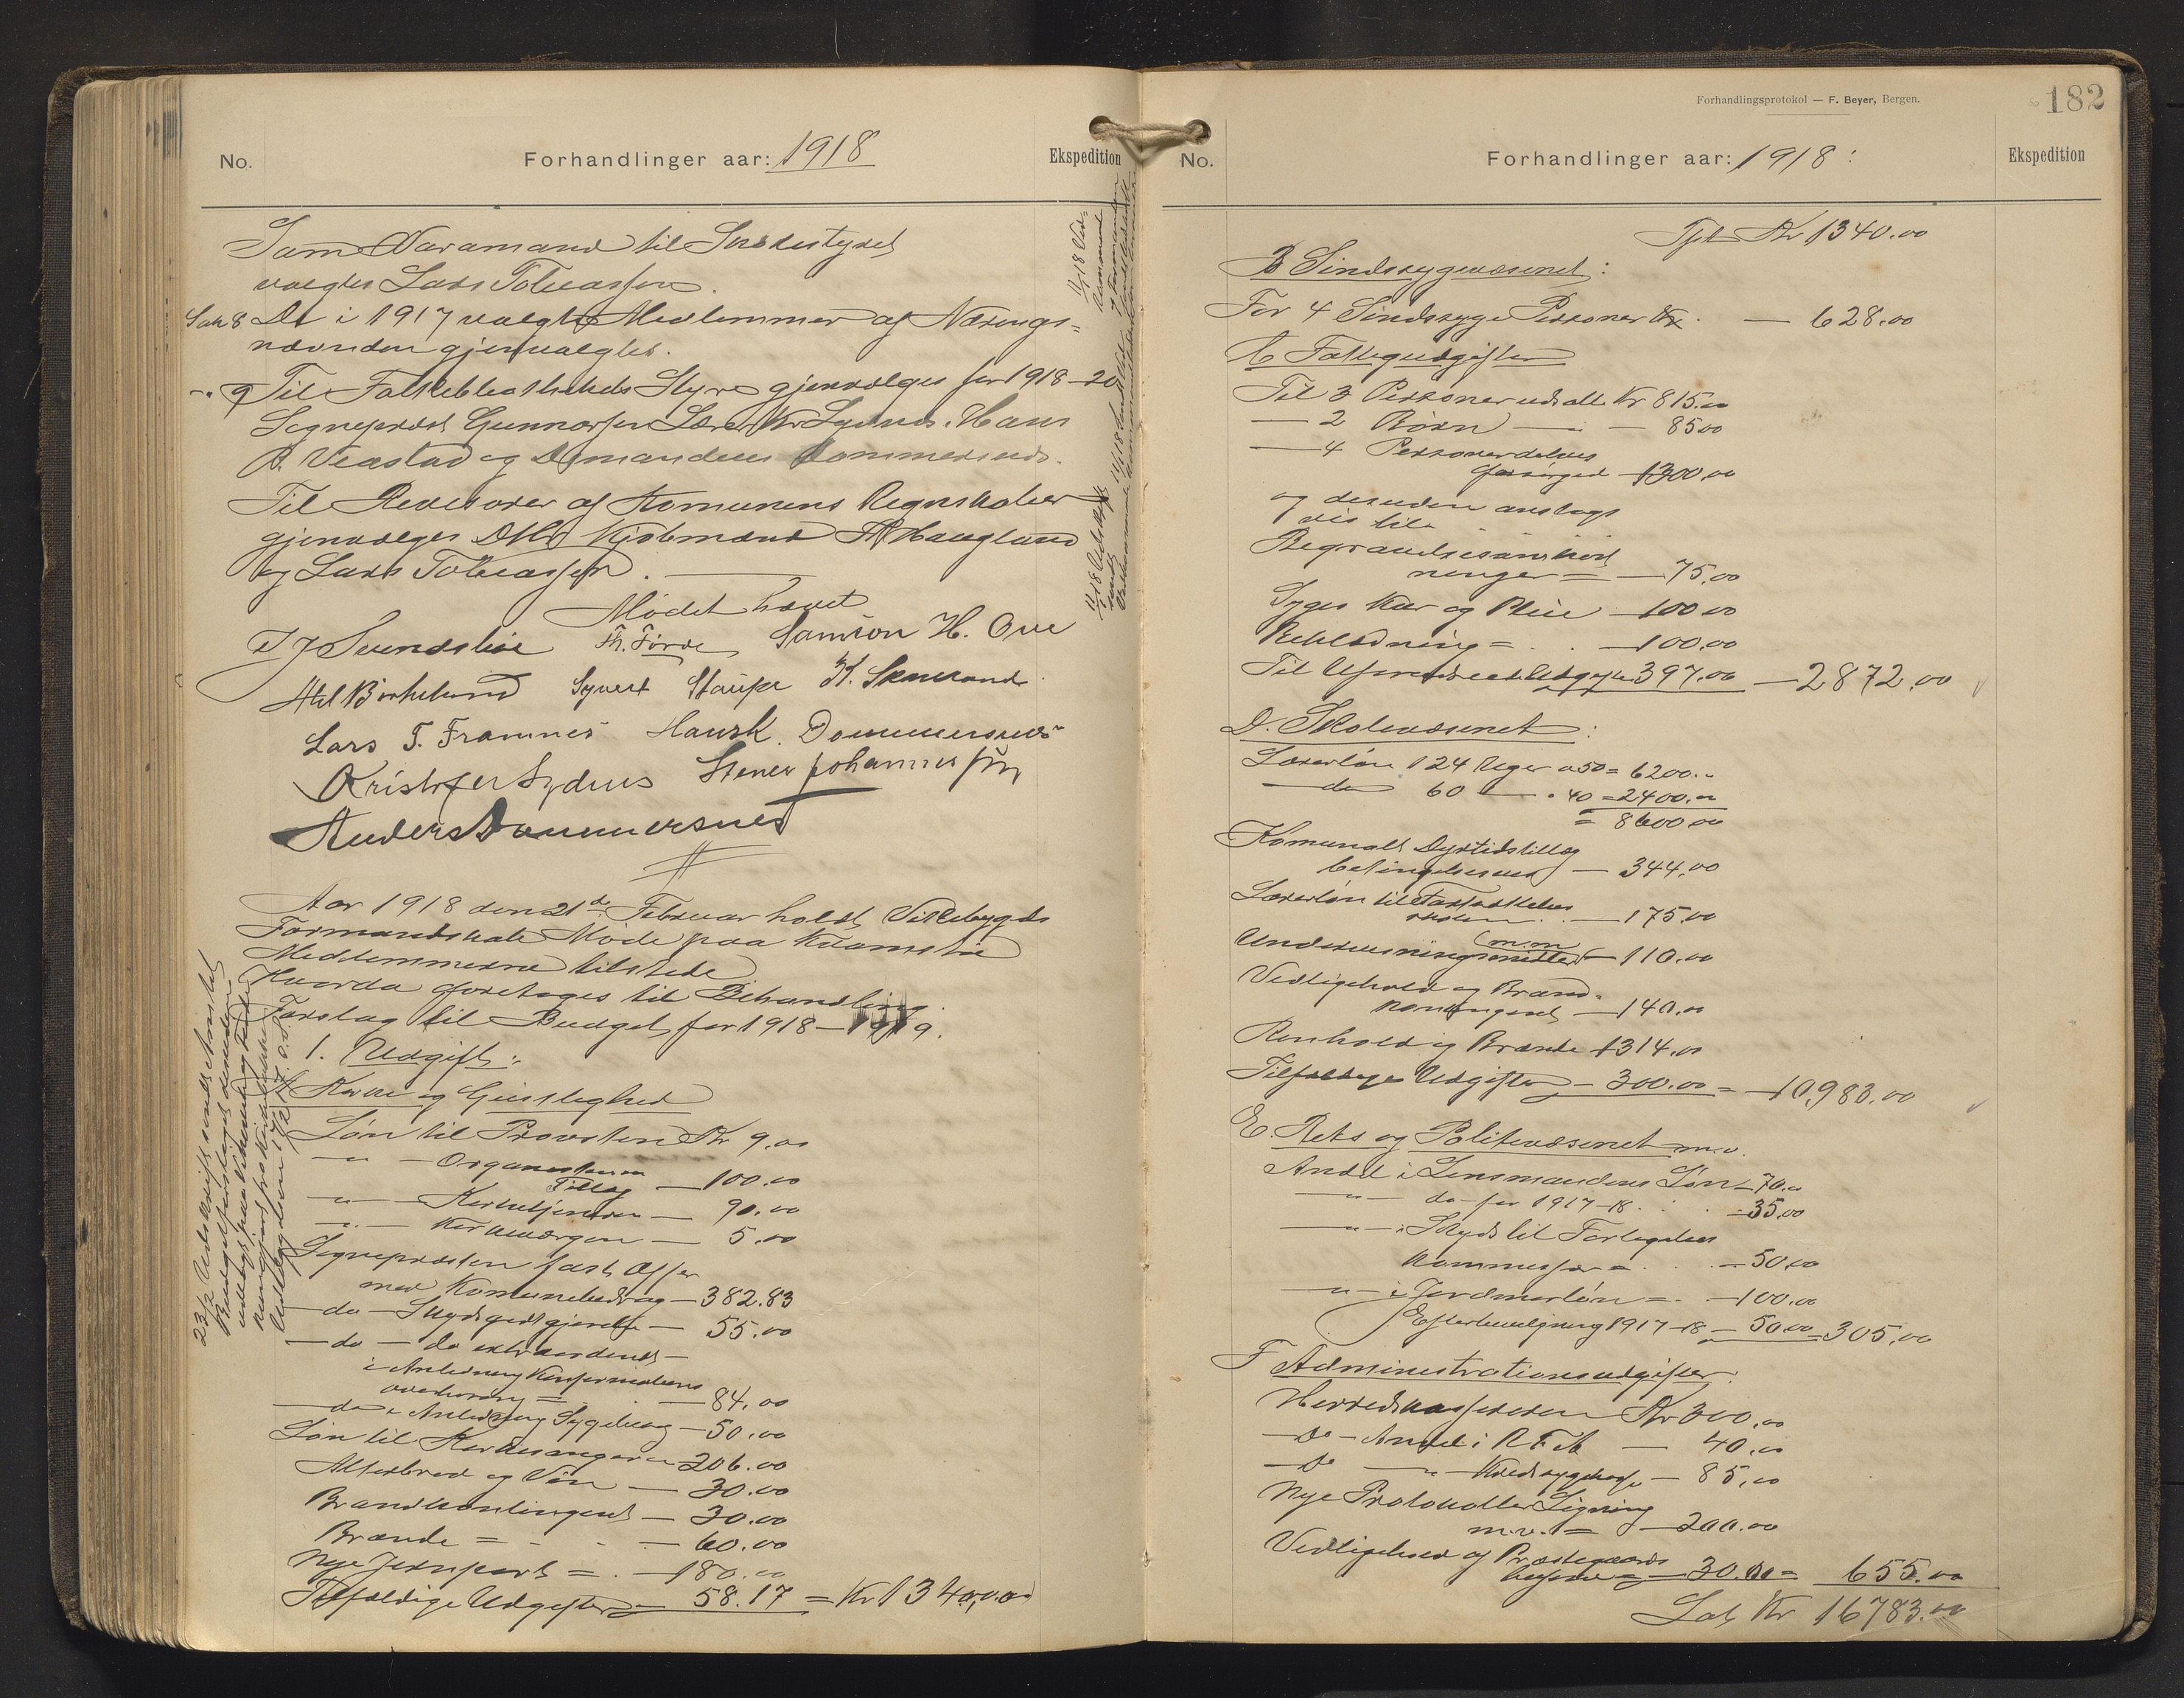 No.
Forhandlinger aar: 1918
Ekspedition
Som Varamand til
valgtes Lars Tobiassen.
Sak 8 De i 1917 valgte Medlemmer af Nærings=
nævnden gjenvalgtes.
-"- 9 Til Folkebibliothekets Styre gjenvælges for 1918-20
Sogneprest Gunnarsen Lærer Kr Sydnes. Hans
B. Vikstad og Dommersnes.
Til Revisorer af Komunens Regnskaber
gjenvælges DHr Kjøbmand Haugland
og Lars Tobiassen.
Mødet hævet
Svendsbøe Th. Førde Samson H. Øve
Birkeland Syvert Staupe
Lars T. Framnes Hans K. Dommersnes
Kristofer Sydnes Stener Johannessen
Anders Dommersnes
Aar 1918 den 21de Februar holdt Vikebygds
Formandskab Møde paa
Medlemmerne tilstede
Hvorda foretages til Behandling
Forslag til Budget for 1918-1919.
1. Udgift:
A Kirke og Geistlighed
Løn til Provsten Kr 9.00
-"- - Organisten m
Tillæg - 100.00
-"- - Kirketjeneren - 90.00
-"- - Kirkeværgen - 5.00
Sognepresten fast Offer
med Komunebidrag - 382.83
- do - Skydsgodtgjørelse - 55.00
- do - do extraordinært -
i Anledning Konfirmationens
overhøring = - 84.00
- do i Anledning Sygebesøg - 50.00
Løn til Kirkesangeren 206.00
Alterbrød og Vin - 30.00
Brandkontingent - 30.00
Brænde = - 60.00
Nye Jernport = - 180.00
Tilfældige Udgifter = 58.17 = Kr 1340.00
23/2 Udskrift sendt Amtet
Forhandlingsprotokol — F. Beyer, Bergen.
182
No.
Forhandlinger aar: 1918:
Ekspedition
Kr 1340.00
B Sindssygevæsenet:
For 4 Sindssyge Personer Kr. - 628.00
C Fattigudgifter
Til 3 Personer udsatte Kr 815.00
- 2 Børn - 85.00
- 4 Personer delvis
forsørged - 1300.00
og desuden anslags
vis til
Begravelsesomkost
ninger = - 75.00
Syges Kur og Pleie - 100.00
Beklædning = - 100.00
Til Uforudseet Udgift 397.00 - 2872.00
D. Skolevæsenet:
Lærerløn 124 Uger a 50 = 6200.00
- do 60 - " 40 = 2400.00
= 8600.00
Komunalt Dyrtidstillæg
betingelsesvis - 344.00
Lærerløn til Fortsættelses
skolen - 175.00
Undervisningsmidler m.m - 110.00
Vedligehold og Brand=
kontingent - 140.00
Renhold og Brænde 1314.00
Tilfældige Udgifter - 300.00 = - 10,983.00
E. Rets og Politivæsenet m.v.
Andel i Lensmandens Løn - 70.00
-"- do for 1917-18 - 35.00
-"- i Skyds til Forligelses
kommissær = - 50.00
-"- i Jordmorløn = - 100.00
Efterbevilgning 1917-18 - 50.00 = 305.00
F Administrationsudgifter:
Herredskassereren Kr 300.00
- do - Andel i R F A - 40.00
- do -"- Kredssygekasse - 85.00
Nye Protokoller Ligning
m.v. = - 200.00
Vedligehold af Præstegaards
husene = - 30.00 = 655.00
Lat Kr 16783.00